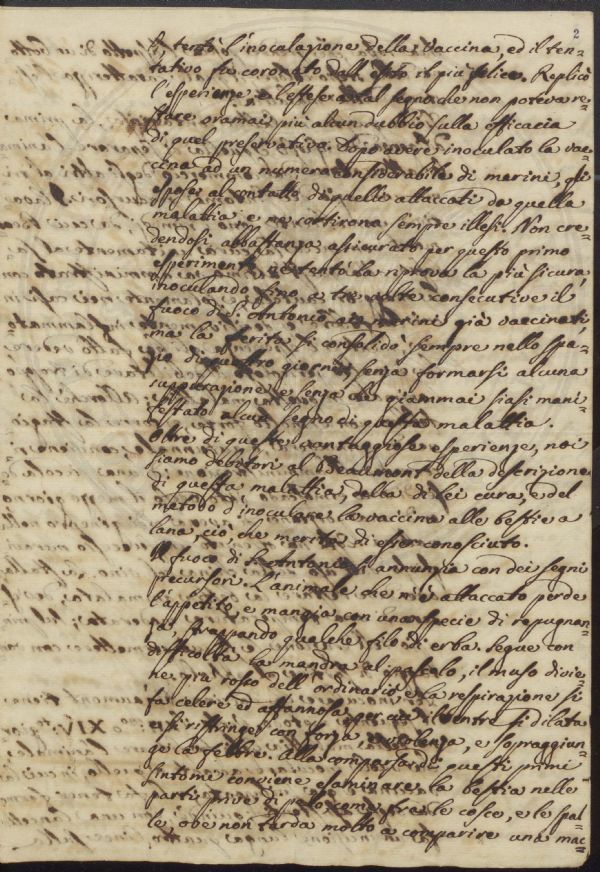 2
si, tentò l'inoculazione della vaccina, ed il ten=
tativo fu coronato dall'esito il più felice. Replicò
l'esperienze, e l'estese a tal segno che non poteva re=
stare oramai più alcun dubbio sulla efficacia
di quel preservativo. Dopo avere inoculato la vac=
cina ad un numero considerabile di marini, gli
espose al contatto di quelli attaccati da quella
malattia e ne sortirono sempre illesi. Non cre=
dendosi abbastanza assicurato per questo primo
esperimento ne tentò la riprova la più sicura,
inoculando fino a tre volte consecutive il
fuoco di S. Antonio ai marini già vaccinati,
ma la ferita si consolidò sempre nello spa=
zio di quattro giorni, senza formarsi alcuna
suppurazione e senza che giammai siasi mani=
festato alcun segno di questa malattia.
Oltre di queste vantaggiose esperienze, noi
siamo debitori al Beaumont della descrizione
di questa malattia, della di lei cura, e del
metodo d'inoculare la vaccina alle bestie a
lana, ciò, che merita di esser conosciuto.
Il fuoco di S. Antonio si annunzia con dei segni
precursori. L'animale che n'è attaccato perde
l'appetito, e mangia con una specie di repugnan=
za, strappando qualche filo di erba. Segue con
difficoltà la mandra al pascolo, il muso divie=
ne più rosso dell'ordinario, e la respirazione si
fa celere ed affannosa, per cui il ventre si dilata
e si ristringe con forza, e violenza, e sopraggiun=
ge la febbre. Alla comparsa di questi primi
sintomi conviene esaminare la bestia nelle
parti prive di pelo, come fra le cosce, e le spal=
le, ove non tarda molto a comparire una mac=